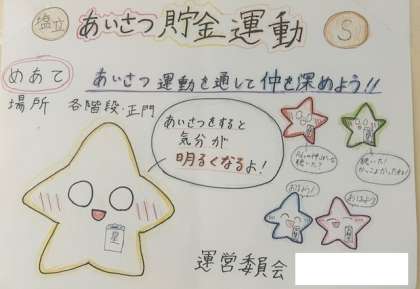 塩立
あいさつ貯金運動
S
めあて
あいさつ運動を通して仲を深めよう!!
場所 各階段・正門
あいさつをすると
気分が
明るくなるよ!
聴いた!
おはよう!
おはよう
星
運営委員会